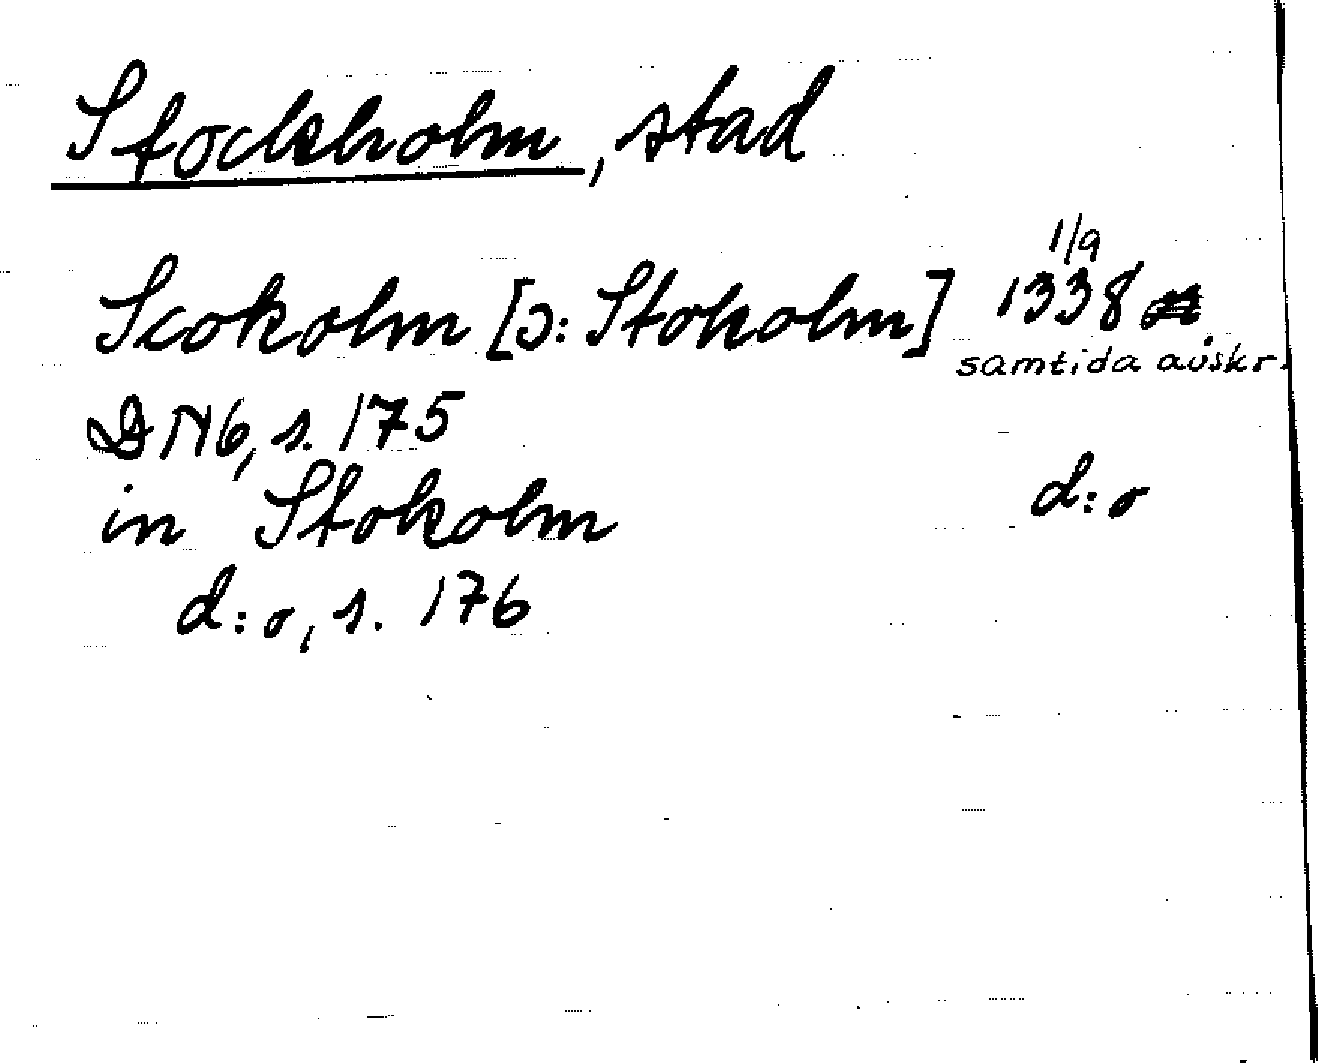 Stockholm, stad
Scokolm [ɔ: Stokolm] 1338 1/9
samtida avskr.
DN6, s. 175
in Stokolm d:o
d:o, s. 176